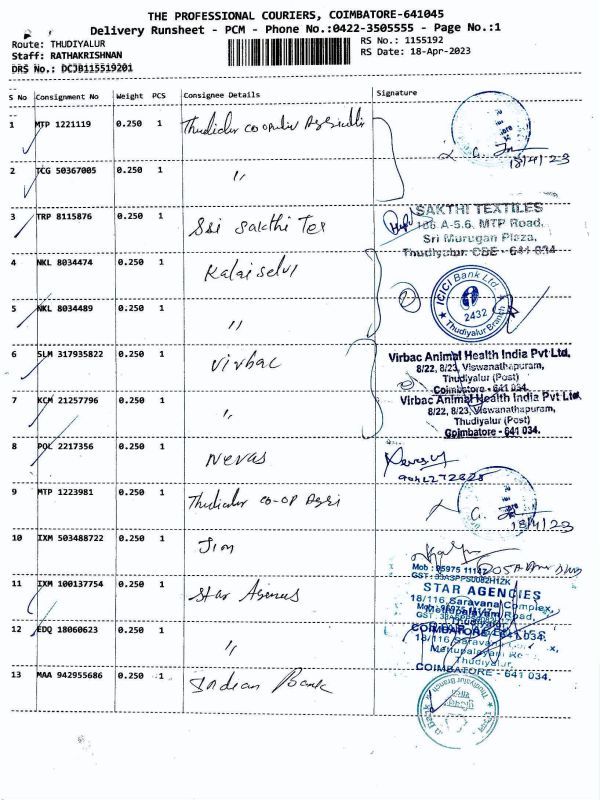 THE PROFESSIONAL COURIERS, COIMBATORE-641045
Delivery Runsheet - PCM - Phone No.:0422-3505555 - Page No.:1
Route: THUDIYALUR
Staff: RATHAKRISHNAN
DRS No.: DCJB115519201
RS No.: 1155192
RS Date: 18-Apr-2023
S No Consignment No Weight PCS Consignee Details Signature
1 MTP 1221119 0.250 1
18/4/23
2 TCG 50367005 0.250 1 "
3 TRP 8115876 0.250 1 Sri Sakthi Tex
SAKTHI TEXTILES
186 A-5.6, MTP Road,
Sri Murugan Plaza,
Thudiyalur. CBE - 641 034
4 NKL 8034474 0.250 1 Kalaiselvi
ICICI Bank Ltd.
2432
Thudiyalur Branch
5 NKL 8034489 0.250 1 "
6 SLM 317935822 0.250 1 Virbac
Virbac Animal Health India Pvt Ltd,
8/22, 8/23, Viswanathapuram,
Thudiyalur (Post)
Coimbatore - 641 034.
7 KCM 21257796 0.250 1 "
Virbac Animal Health India Pvt Ltd,
8/22, 8/23, Viswanathapuram,
Thudiyalur (Post)
Coimbatore - 641 034.
8 POL 2217356 0.250 1 Nevas
9 MTP 1223981 0.250 1 Thudialur Co-op Agri
18/4/23
10 IXM 503488722 0.250 1
Mob : 95975 11147
11 IXM 100137754 0.250 1 Star Agencies
STAR AGENCIES
18/116, Saravana Complex,
Mettupalayam Road,
Thudiyalur,
COIMBATORE - 641 034.
12 EDQ 18060623 0.250 1 "
18/116, Saravana
Mettupalayam
Thudiyalur,
COIMBATORE - 641 034.
13 MAA 942955686 0.250 1 Indian Bank
Thudiyalur Branch